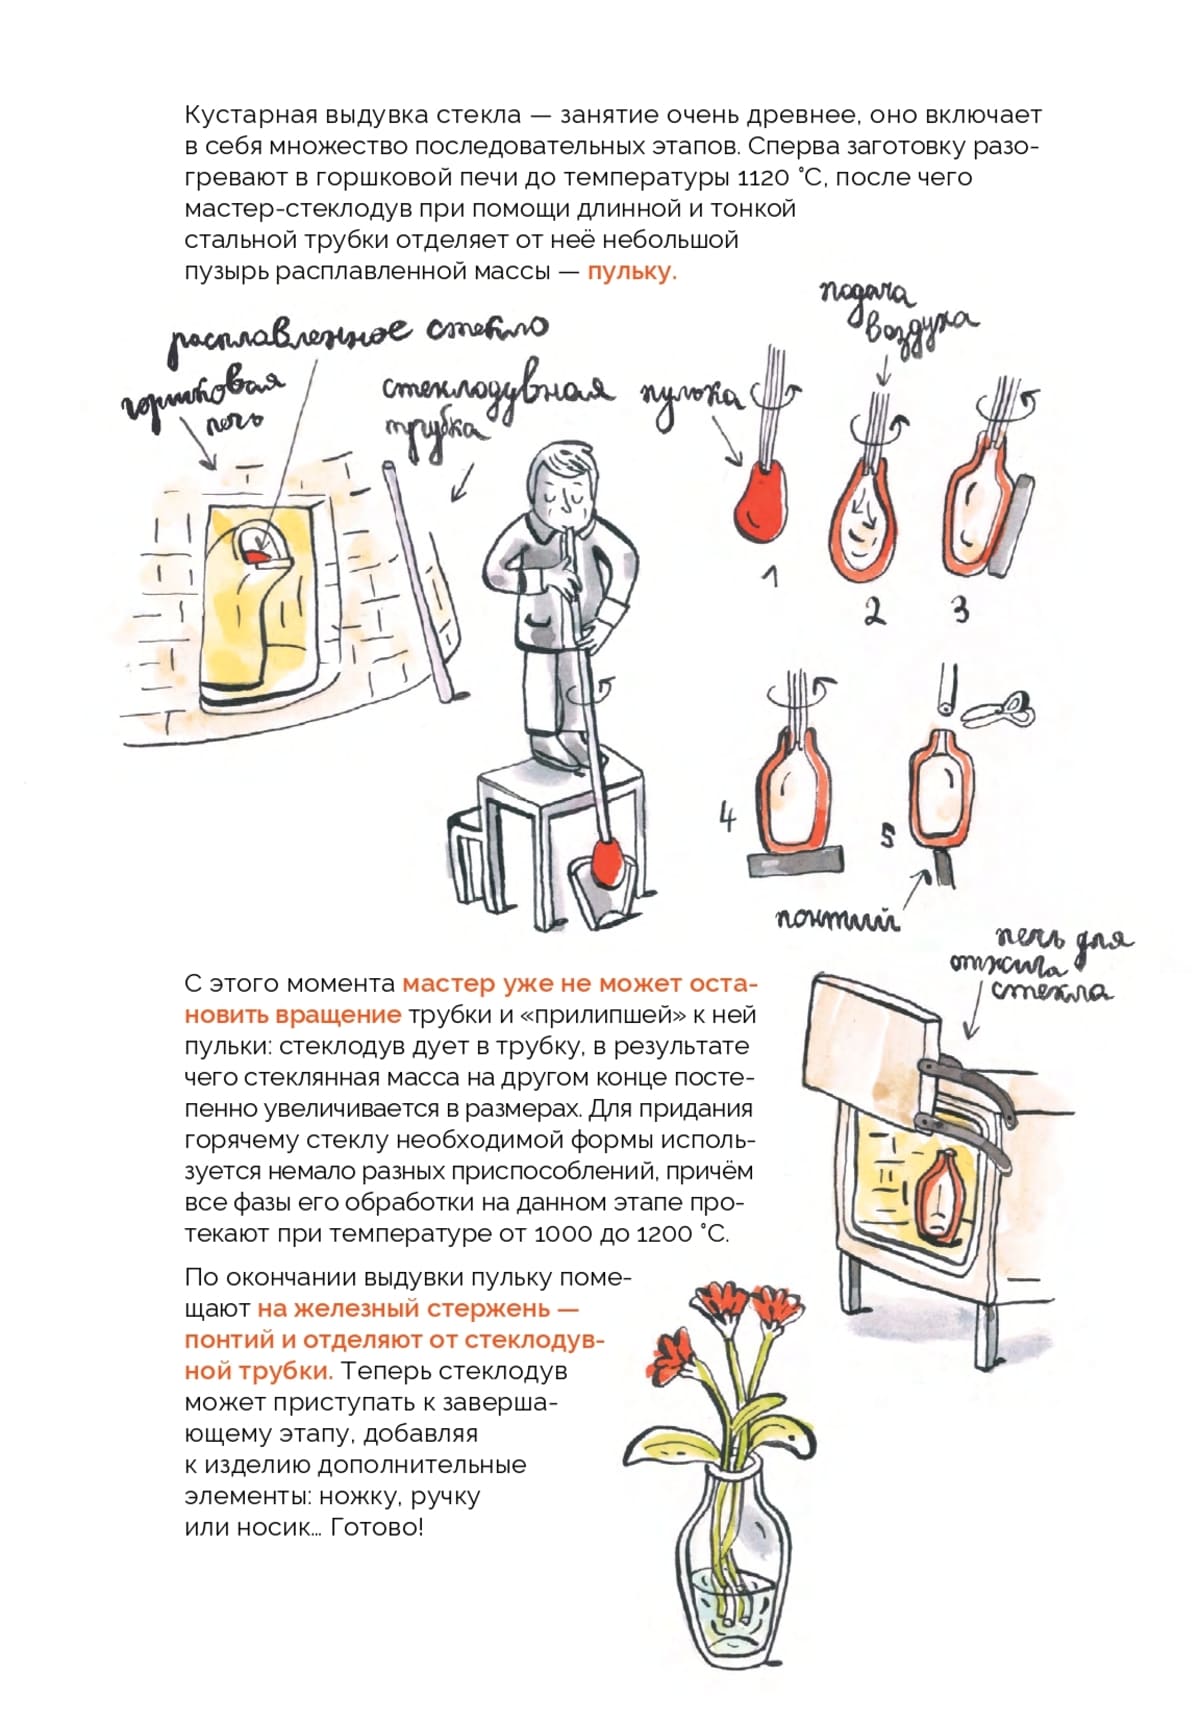 Кустарная выдувка стекла — занятие очень древнее, оно включает
в себя множество последовательных этапов. Сперва заготовку разо-
гревают в горшковой печи до температуры 1120 °С, после чего
мастер-стеклодув при помощи длинной и тонкой
стальной трубки отделяет от неё небольшой
пузырь расплавленной массы — пульку.
расплавленное стекло
горшковая
печь
стеклодувная
трубка
пулька
подача
воздуха
1
2
3
4
5
понтий
печь для
отжига
стекла
С этого момента мастер уже не может оста-
новить вращение трубки и «прилипшей» к ней
пульки: стеклодув дует в трубку, в результате
чего стеклянная масса на другом конце посте-
пенно увеличивается в размерах. Для придания
горячему стеклу необходимой формы исполь-
зуется немало разных приспособлений, причём
все фазы его обработки на данном этапе про-
текают при температуре от 1000 до 1200 °С.
По окончании выдувки пульку поме-
щают на железный стержень —
понтий и отделяют от стеклодув-
ной трубки. Теперь стеклодув
может приступать к заверша-
ющему этапу, добавляя
к изделию дополнительные
элементы: ножку, ручку
или носик… Готово!